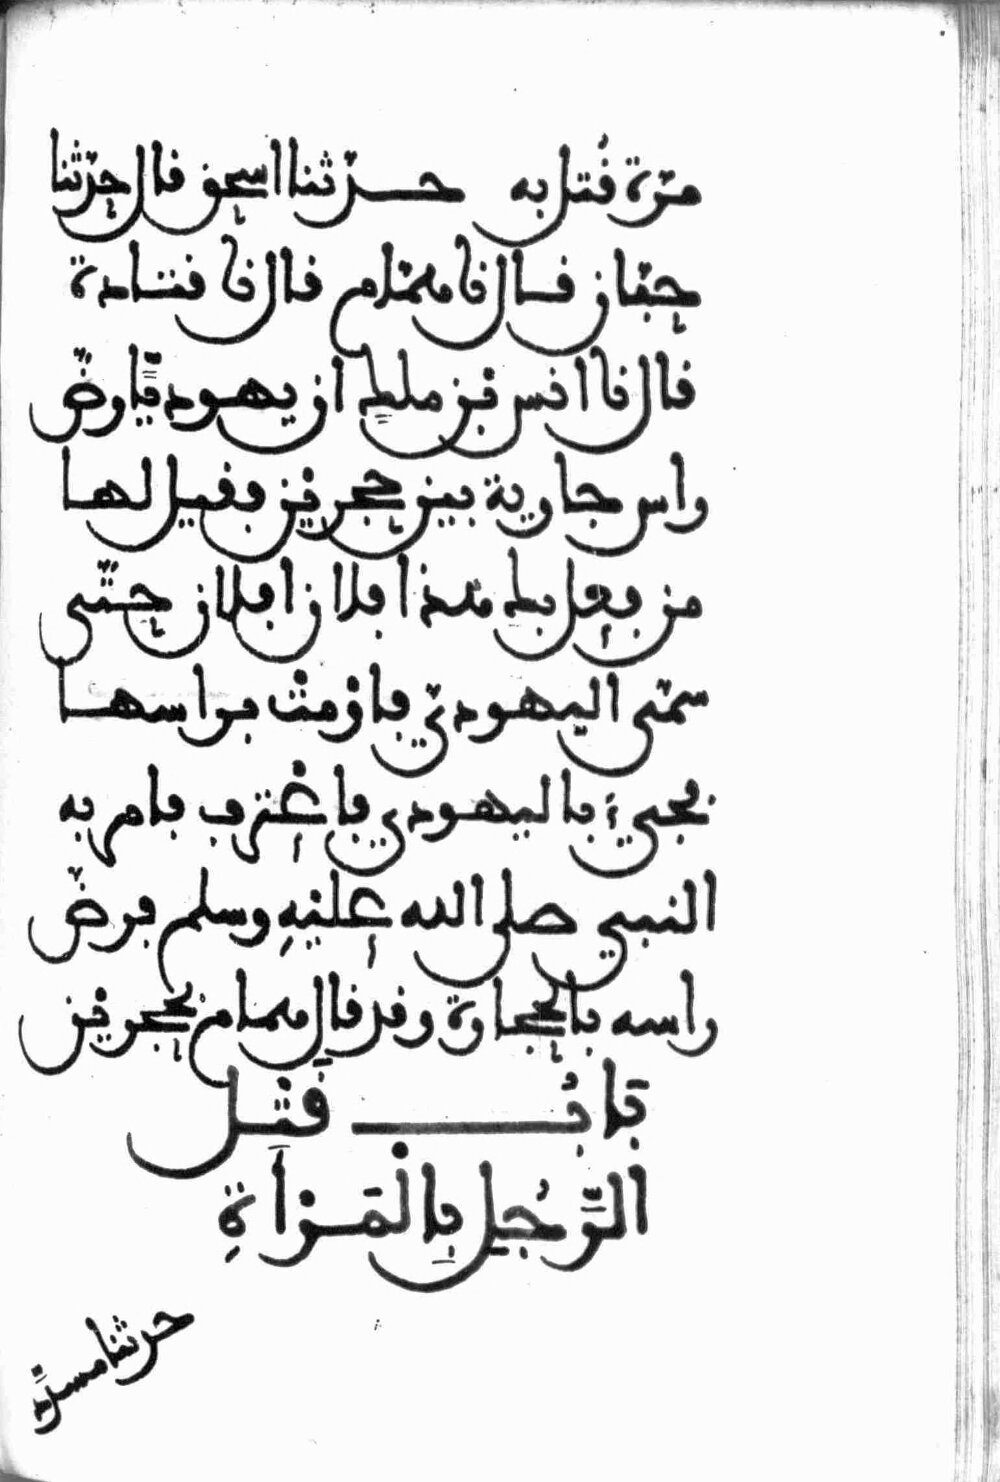 مرّة قُتل به حدّثنا اسحق قال حدّثنا
حبّان قال نا همّام قال نا قتادة
قال نا انس بن ملك ان يهوديّا رضّ
راس جارية بين حجرين فقيل لها
من فعل بك هذا افلان افلان حتّى
سمّى اليهوديّ فاوْمتْ براسها
فجيء باليهودي فاعْترف فامر به
النبي صلى الله عليْهِ وسلم فرضّ
راسه بالحجارة وقد قال همام بحجريْن
بَابُ قَتْل
الرَّجُلِ بِالْمَرْأَةِ
حدثنا مسدَّد